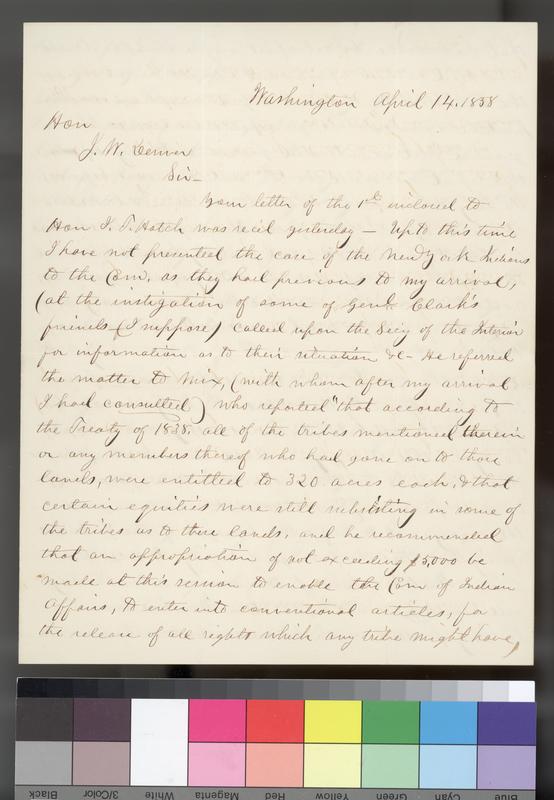 Washington April 14. 1858
Hon
J. W. Denver
Sir -
Your letter of the 1st inclosed to
Hon I. T. Hatch was rec'd yesterday — Up to this time
I have not presented the case of the New York Indians
to the Com. as they had previous to my arrival,
(at the instigation of some of Genl. Clark's
friends (I suppose) called upon the Secy of the Interior
for information as to their situation &c - He referred
the matter to Mix, (with whom after my arrival
I had consulted) who reported "that according to
the Treaty of 1838. all of the tribes mentioned therein
or any members thereof who had gone on to those
lands, were entitled to 320 acres each, & that
certain equities were still subsisting in some of
the tribes as to these lands, and he recommended
that an appropriation of not exceeding $5,000 be
made at this session to enable the Com of Indian
Affairs, to enter into conventional articles, for
the release of all rights which any tribe might have,
Black
3/Color
White
Magenta
Red
Yellow
Green
Cyan
Blue